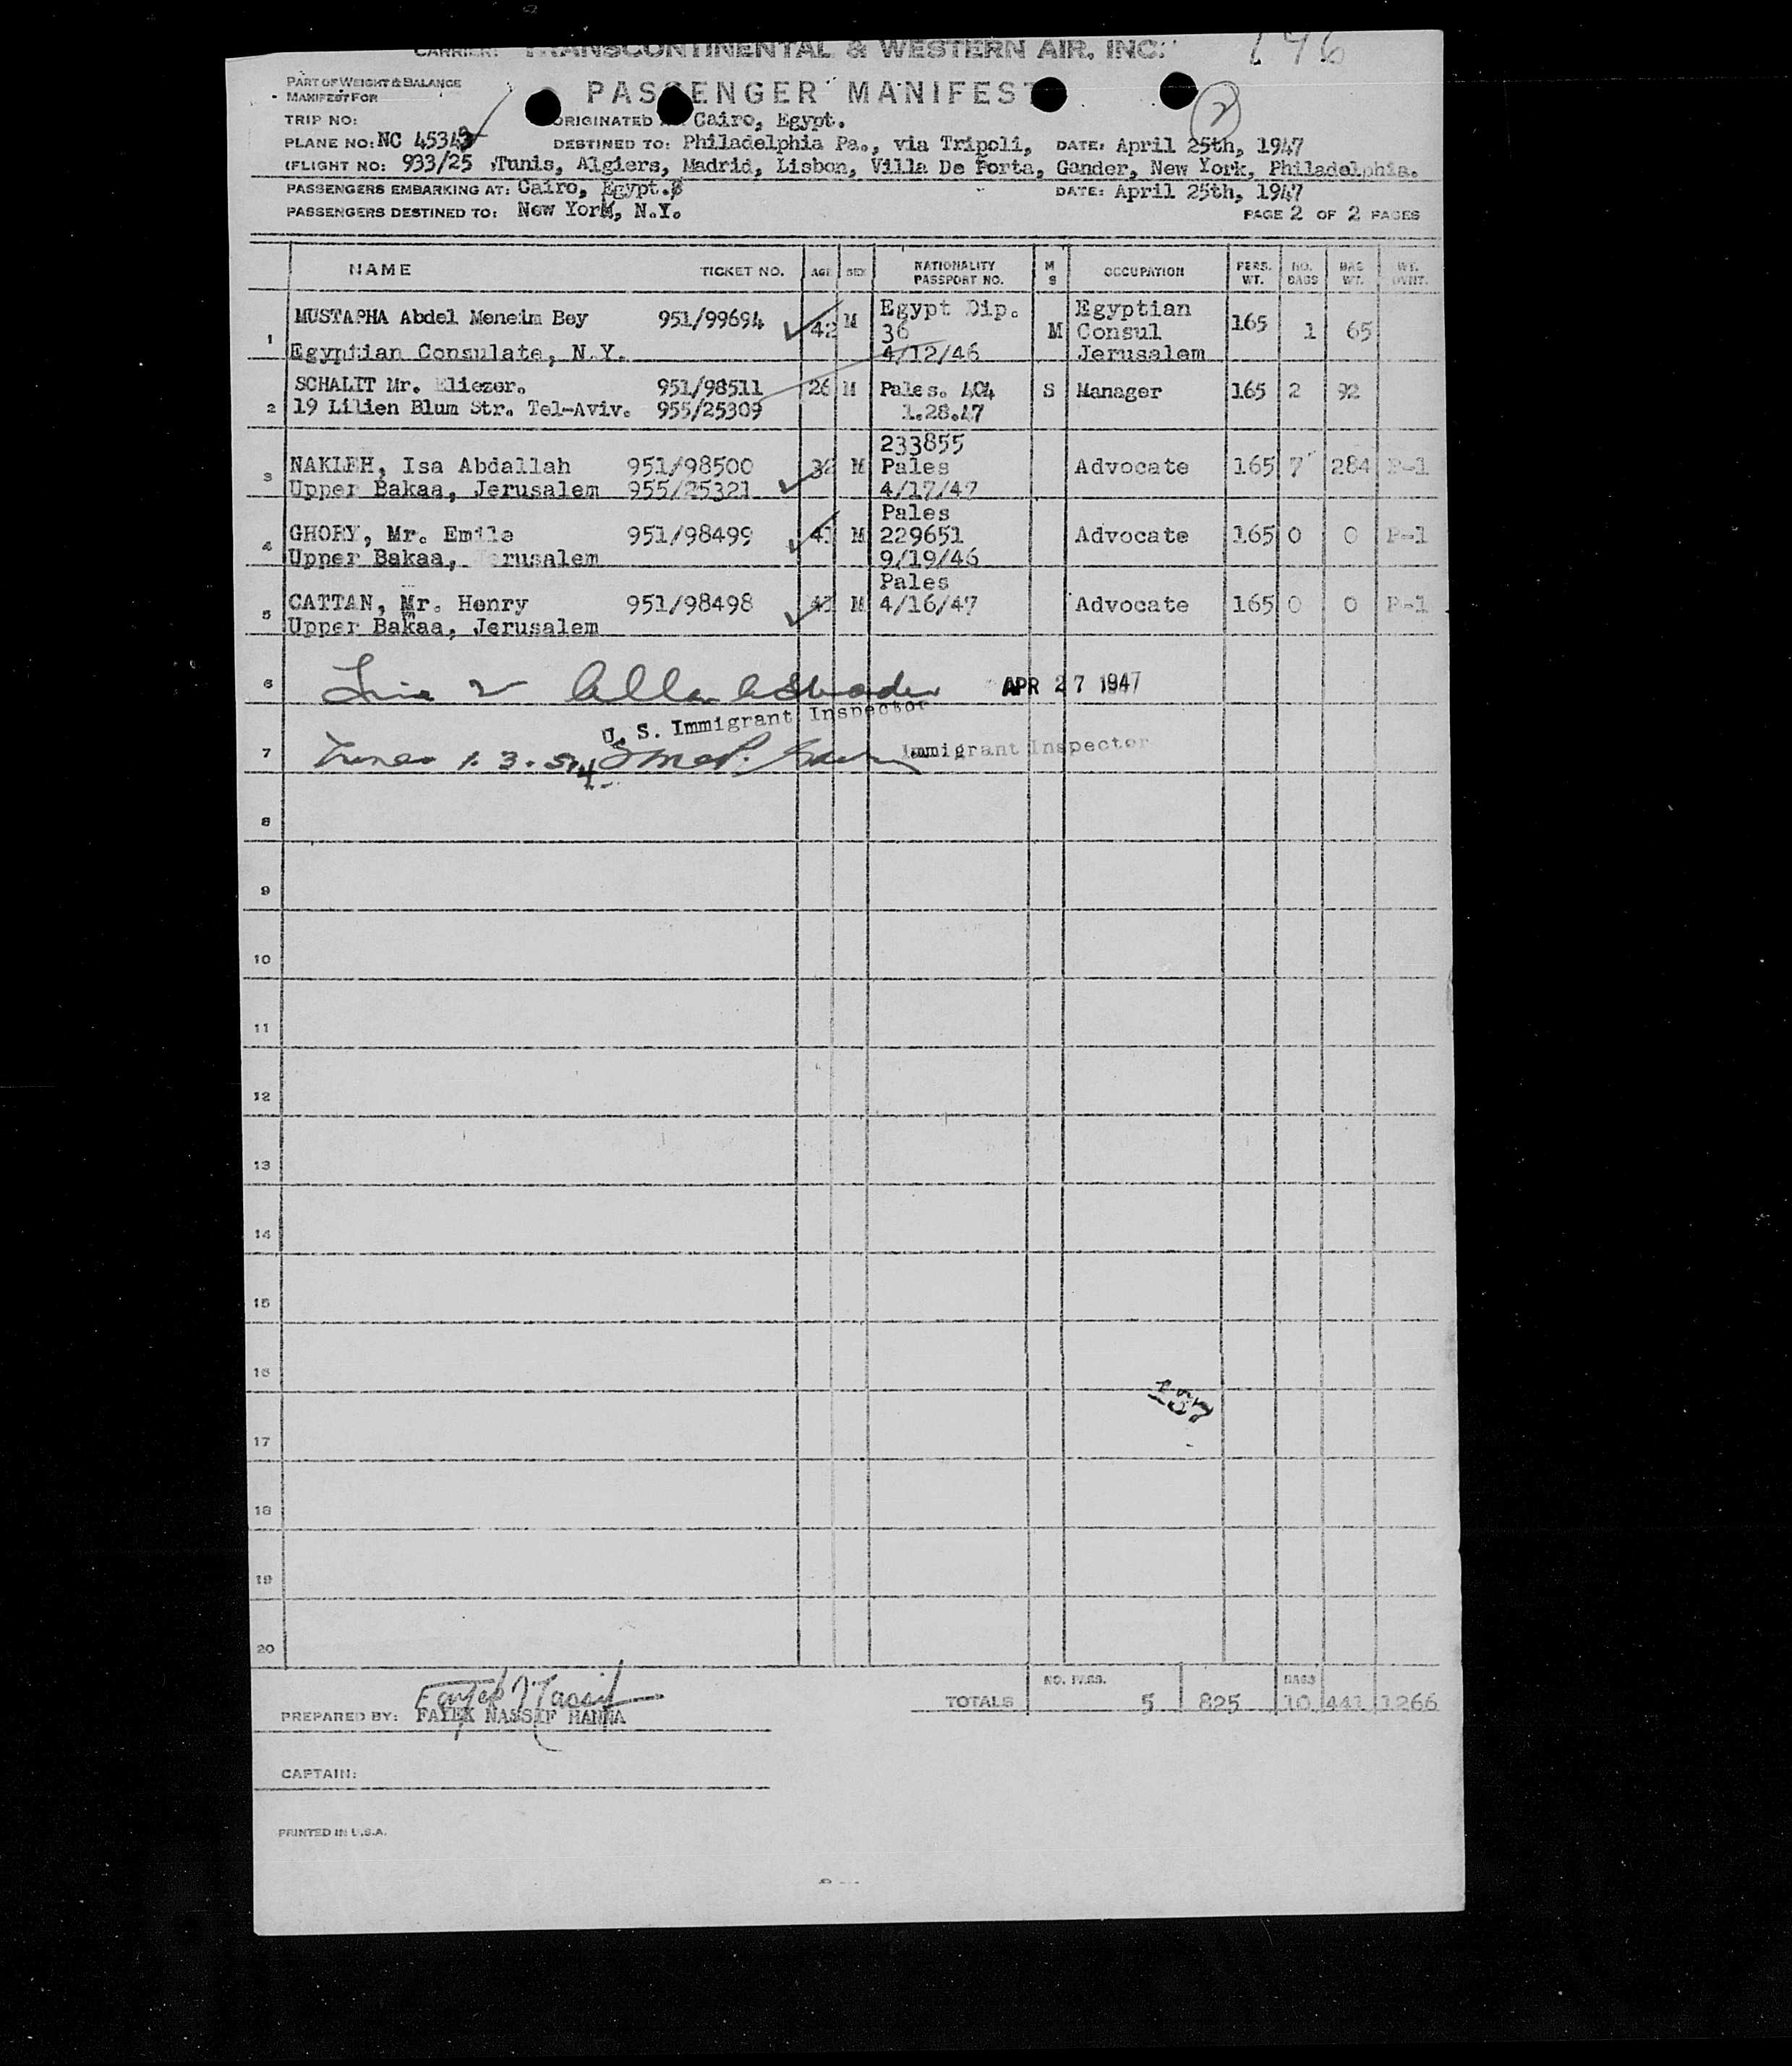 CARRIER: TRANSCONTINENTAL & WESTERN AIR, INC.
196
PART OF WEIGHT & BALANCE
MANIFEST FOR
PASSENGER MANIFEST
2
TRIP NO: ORIGINATED Cairo, Egypt.
PLANE NO: NC 45343 DESTINED TO: Philadelphia Pa., via Tripoli, DATE: April 25th, 1947
(FLIGHT NO: 933/25 Tunis, Algiers, Madrid, Lisbon, Villa De Porta, Gander, New York, Philadelphia.
PASSENGERS EMBARKING AT: Cairo, Egypt. DATE: April 25th, 1947
PASSENGERS DESTINED TO: New York, N.Y. PAGE 2 OF 2 PAGES
NAME TICKET NO. AGE SEX NATIONALITY PASSPORT NO. M S OCCUPATION PERS. WT. NO. BAGS BAG WT. WT. OVHT.
1 MUSTAPHA Abdel Meneim Bey 951/99694 42 M Egypt Dip. 36 M Egyptian Consul 165 1 65
Egyptian Consulate, N.Y. 4/12/46 Jerusalem
SCHALIT Mr. Eliezer. 951/98511 26 M Pales. 404 S Manager 165 2 92
2 19 Lilien Blum Str. Tel-Aviv. 955/25309 1.28.47
233855
3 NAKLEH, Isa Abdallah 951/98500 32 M Pales Advocate 165 7 284 P-1
Upper Bakaa, Jerusalem 955/25321 4/17/47
Pales
4 GHORY, Mr. Emile 951/98499 41 M 229651 Advocate 165 0 0 P-1
Upper Bakaa, Jerusalem 9/19/46
Pales
5 CATTAN, Mr. Henry 951/98498 41 M 4/16/47 Advocate 165 0 0 P-1
Upper Bakaa, Jerusalem
6 Line 2 APR 27 1947
U. S. Immigrant Inspector
7 Lines 1. 3. 5 4 Immigrant Inspector
8
9
10
11
12
13
14
15
16
137
17
18
19
20
TOTALS NO. PASS. 5 825 BAGS 10 441 1266
PREPARED BY: FAYEK NASSIF HANNA
CAPTAIN:
PRINTED IN U.S.A.